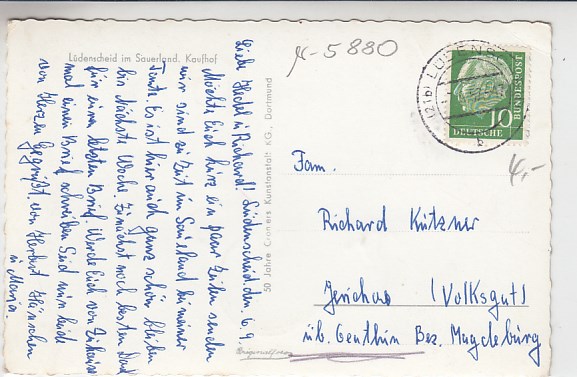 Lüdenscheid im Sauerland, Kaufhof
Lüdenscheid, den 6.9.
Liebe Hedel u. Richard!
Möchte Euch kurz ein paar Zeilen senden
wir sind zu Zeit im Sauerland bei meiner
Tante. Es ist hier auch ganz schön bleiben
bis nächste Woche. Zunächst noch besten Dank
für euren lieben Brief. Werde Euch von Zuhause
mal einen Brief schreiben Seid nun beide
von Herzen gegrüßt. von Herbert
u. Maria.
50 Jahre Cramers Kunstanstalt KG., Dortmund
Originalfoto
5880
(21b) LÜDENSC
b
10
DEUTSCHE
BUNDESPOST
4,-
Fam.
Richard Kützner
Jerichow (Volksgut)
üb. Genthin Bez. Magdeburg